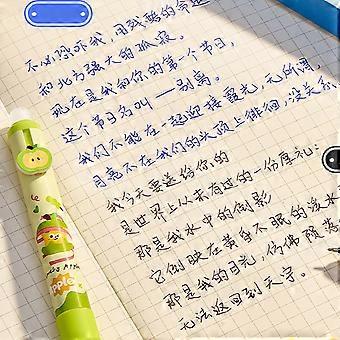 不必恐吓我,用残酷的命运
和北方强大的孤寂。
现在是我和你的第一个节日,
这个节日名叫——别离。
我们不能在一起迎接霞光,无所谓,
月亮不在我们的头顶上徘徊,没关系
我今天要送给你的
是世界上从未有过的一份厚礼:
那是我水中的倒影
它倒映在黄昏不眠的溪水
那是我的目光,仿佛陨落
无法返回到天宇。
apple